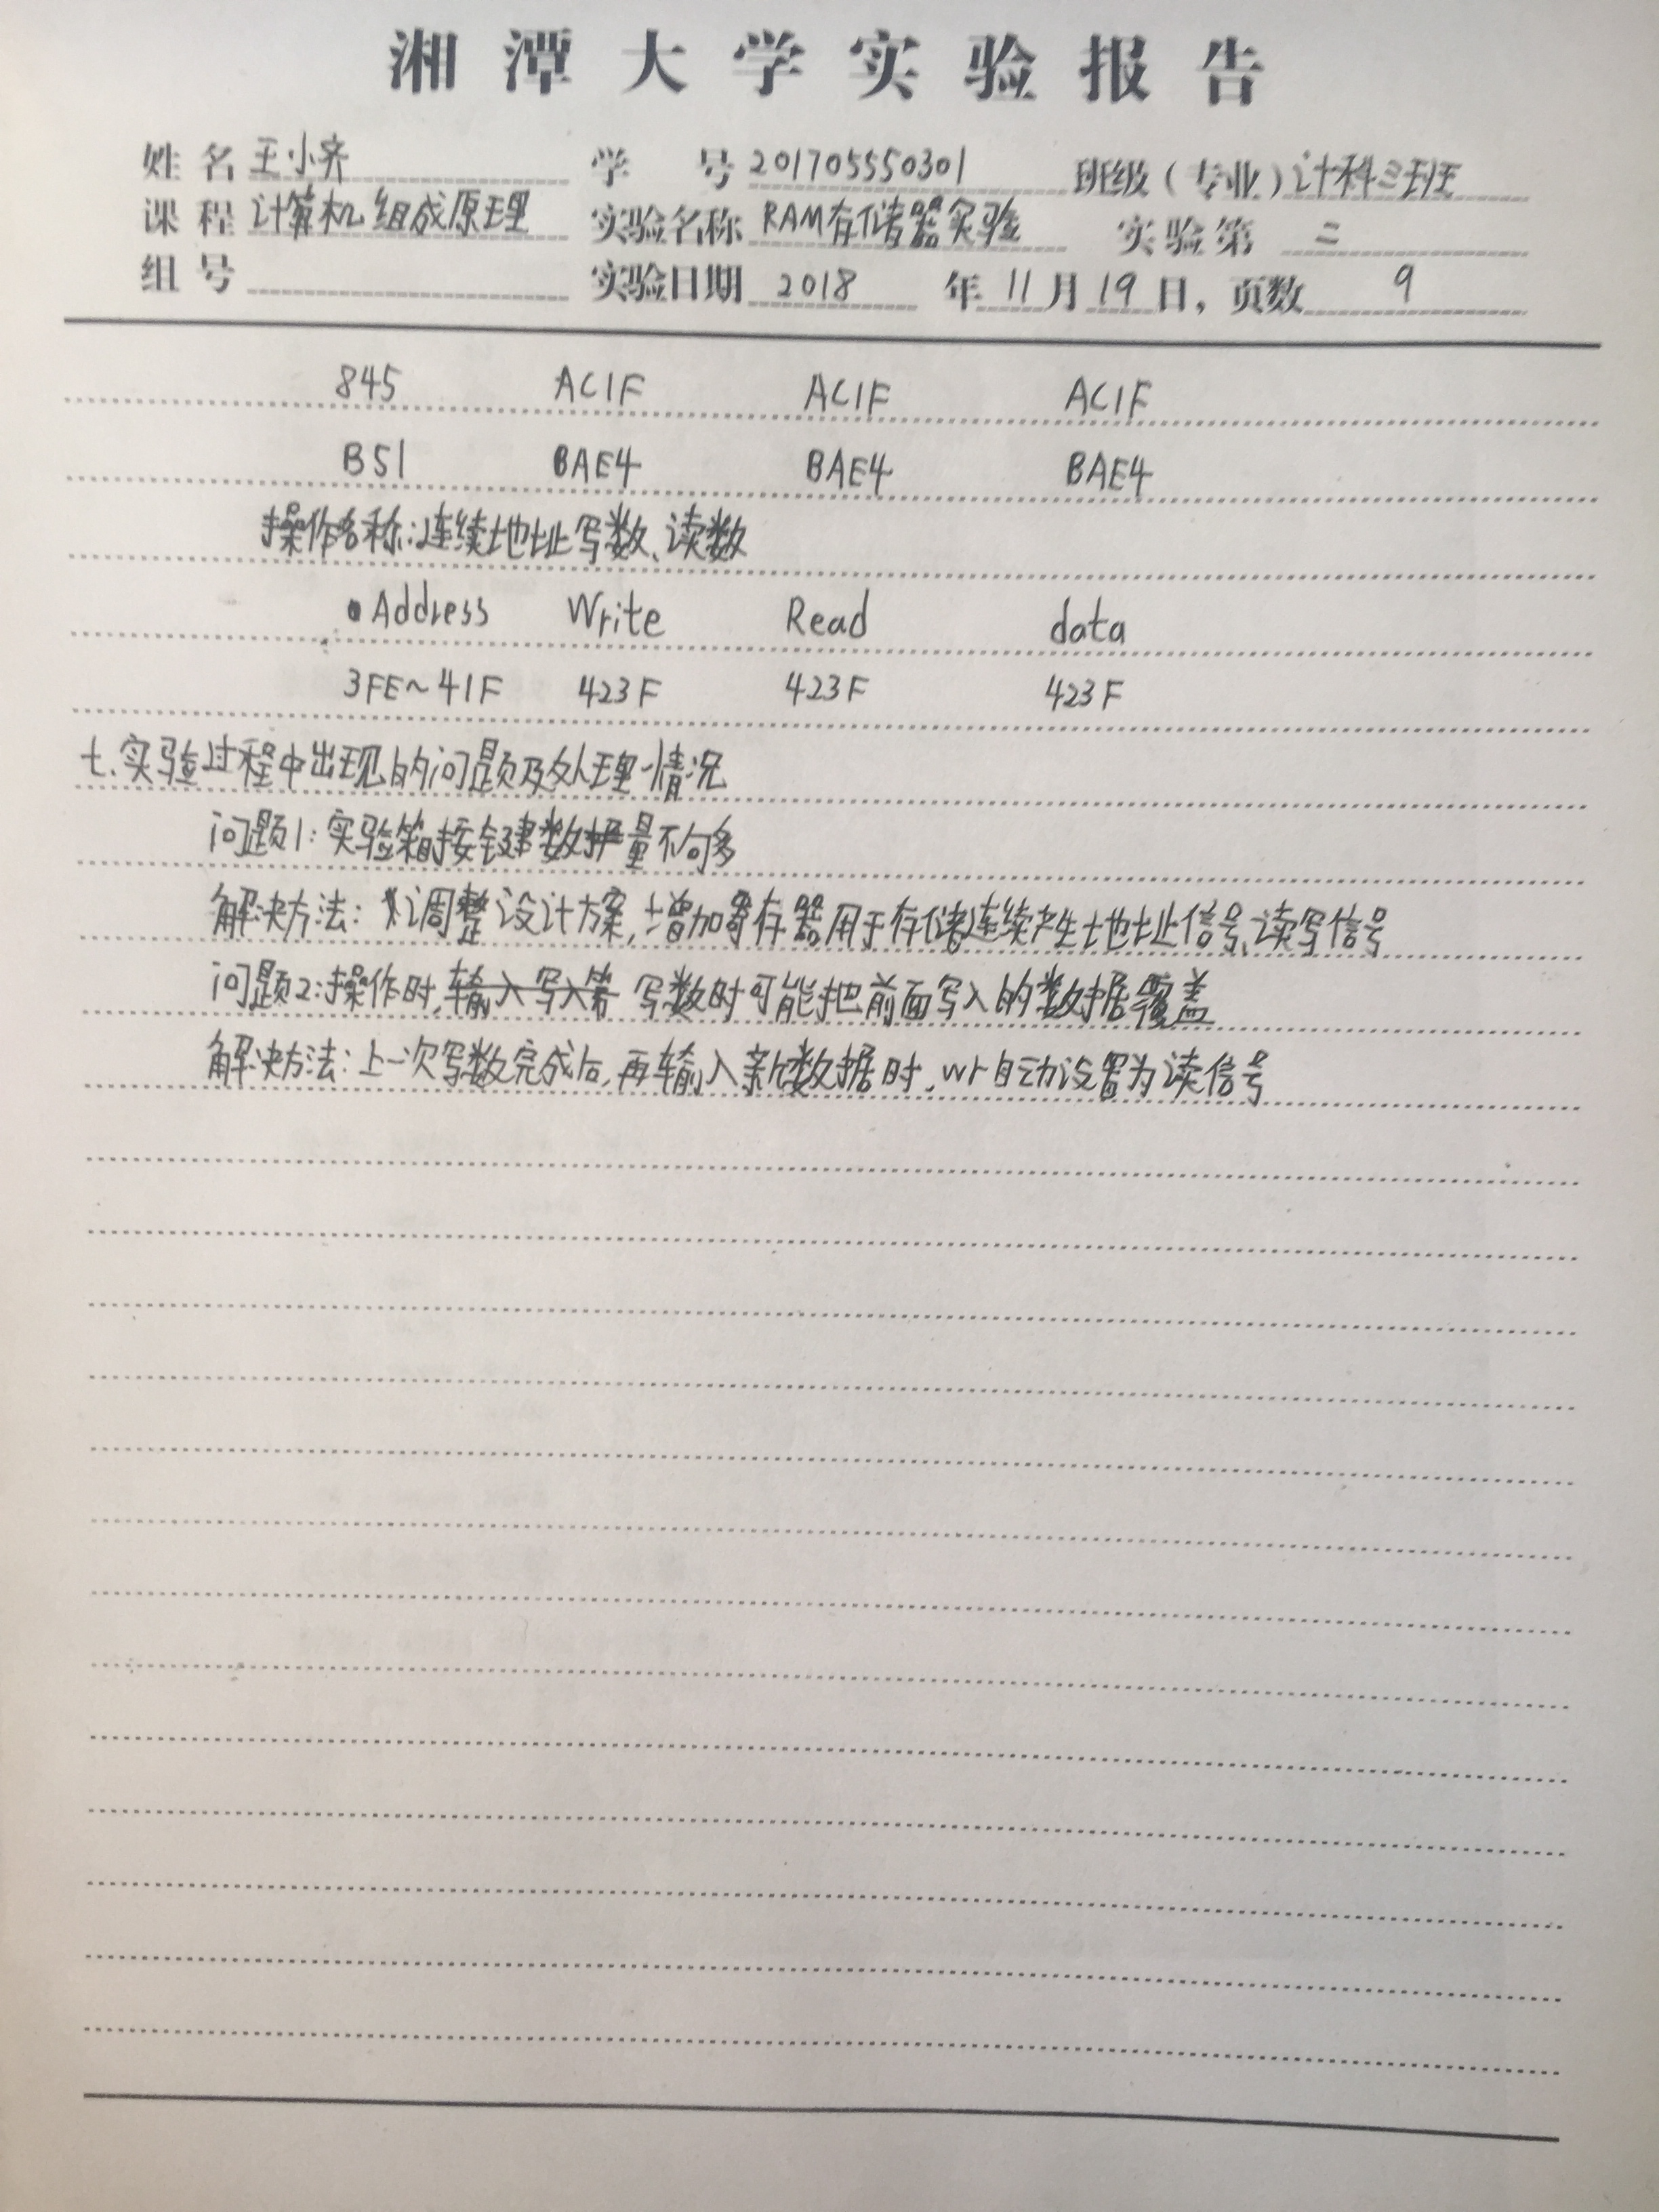 湘潭大学实验报告
姓名 王小齐 学号 201705550301 班级(专业) 计科三班
课程 计算机组成原理 实验名称 RAM存储器实验 实验第 二
组号 实验日期 2018 年 11 月 19 日, 页数 9
845 AC1F AC1F AC1F
B51 BAE4 BAE4 BAE4
操作名称:连续地址写数、读数
Address Write Read data
3FE~41F 423F 423F 423F
七.实验过程中出现的问题及处理情况
问题1:实验箱按键数量不够多
解决方法:调整设计方案,增加寄存器用于存储连续产生地址信号、读写信号
问题2:操作时,写数时可能把前面写入的数据覆盖
解决方法:上一次写数完成后,再输入新数据时,wr自动设置为读信号